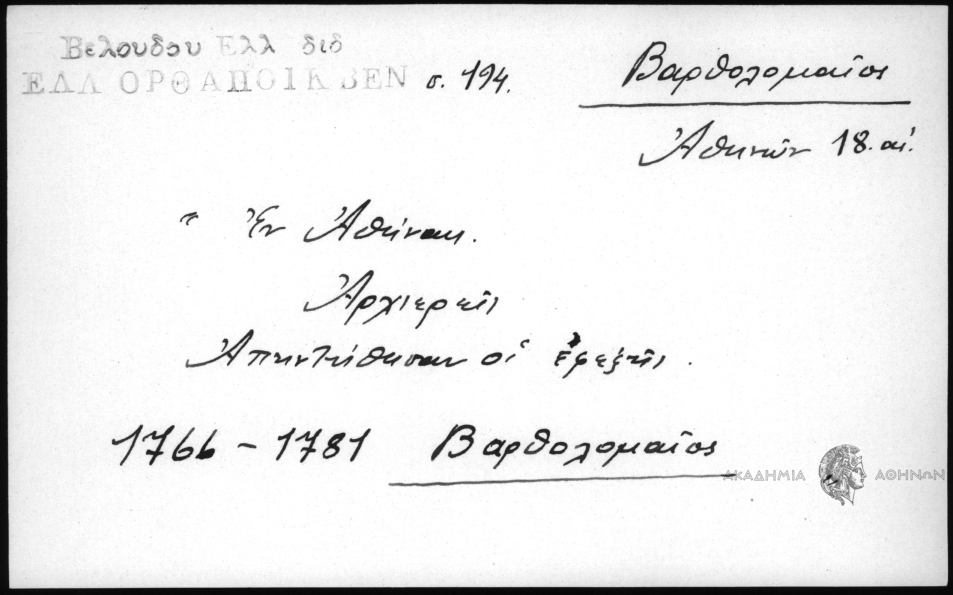 Βελουδου Ελλ διδ
ΕΛΛ ΟΡΘ ΑΠΟΙΚ ΒΕΝ σ. 194.
Βαρθολομαῖος
Ἀθηνῶν 18. αἰ.
" Ἐν Ἀθήναις.
Ἀρχιερεῖς
Ἀπηντήθησαν οἱ ἐφεξῆς.
1766 - 1781 Βαρθολομαῖος
ΑΚΑΔΗΜΙΑ ΑΘΗΝΩΝ